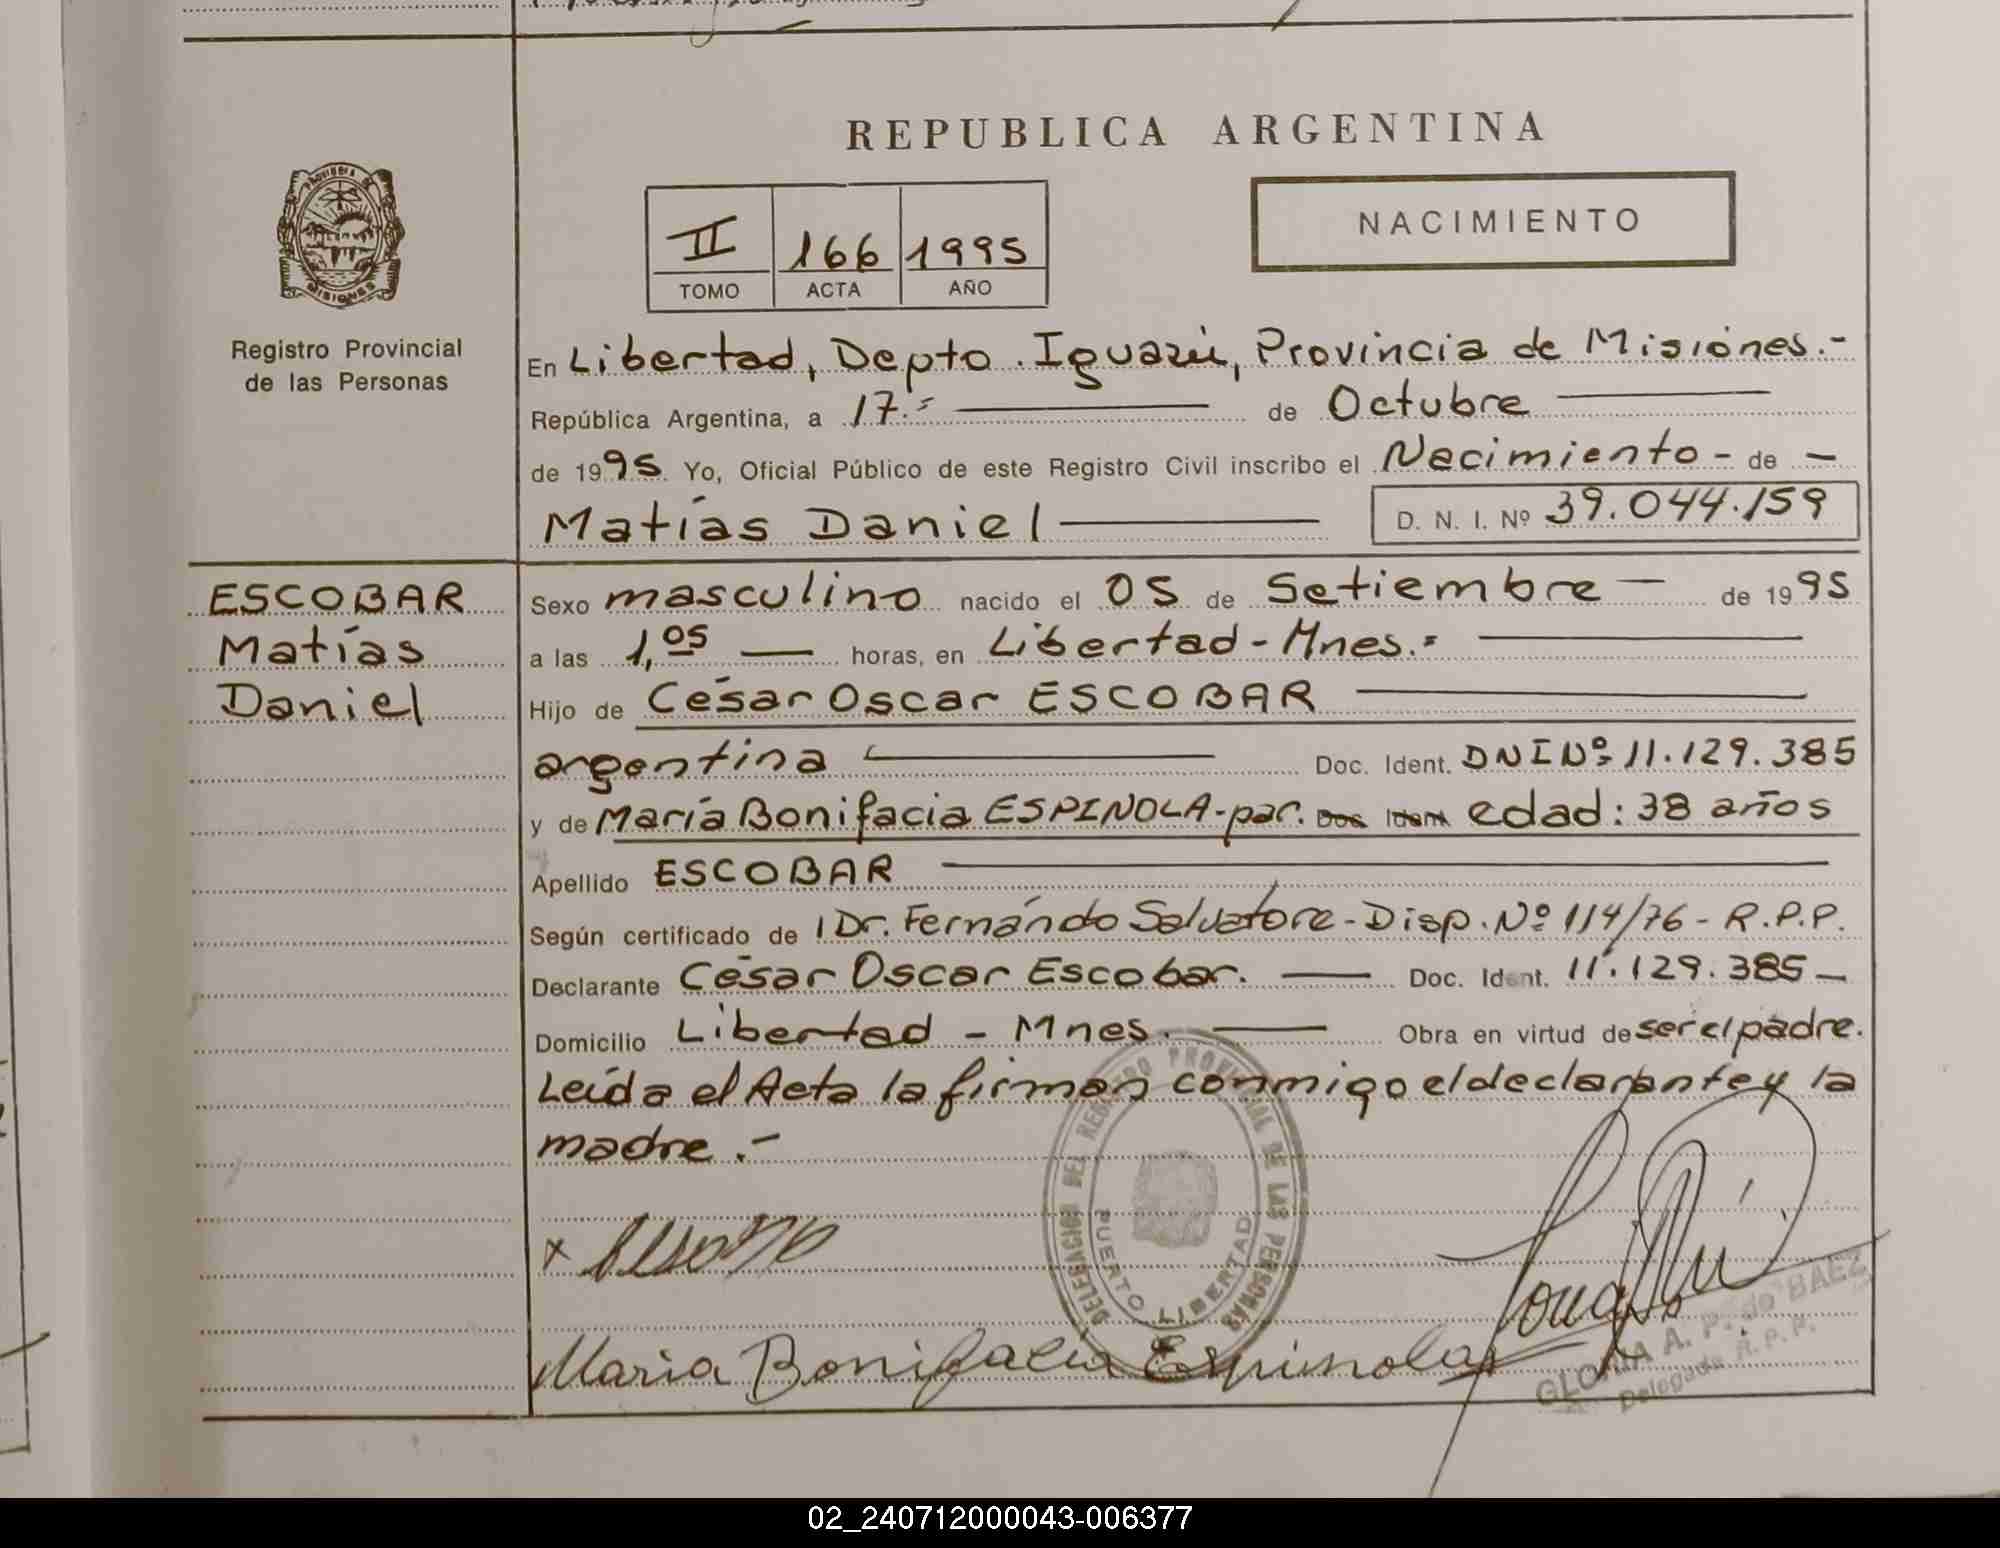 REPUBLICA ARGENTINA
NACIMIENTO
II 166 1995
TOMO ACTA AÑO
PROVINCIA DE
MISIONES
Registro Provincial
de las Personas
En Libertad, Depto. Iguazú, Provincia de Misiones.-
República Argentina, a 17.= de Octubre
de 1995 Yo, Oficial Público de este Registro Civil inscribo el Nacimiento - de -
Matías Daniel D. N. I. Nº 39.044.159
ESCOBAR
Matías
Daniel
Sexo masculino nacido el 05 de Setiembre - de 1995
a las 1,05 horas, en Libertad - Mnes.=
Hijo de César Oscar ESCOBAR
argentina Doc. Ident. DNI Nº 11.129.385
y de María Bonifacia ESPINOLA-par. Doc Ident edad: 38 años
Apellido ESCOBAR
Según certificado de Dr. Fernándo Salvatore - Disp. Nº 114/76 - R.P.P.
Declarante César Oscar Escobar. Doc. Ident. 11.129.385
Domicilio Libertad - Mnes. Obra en virtud de ser el padre.
Leída el Acta la firman conmigo el declarante y la
madre.-
DELEGACION DEL REGISTRO PROVINCIAL DE LAS PERSONAS
PUERTO LIBERTAD
x
Maria Bonifacia Espinola
GLORIA A. P. de BAEZ
Delegada R. P. P.
02_240712000043-006377